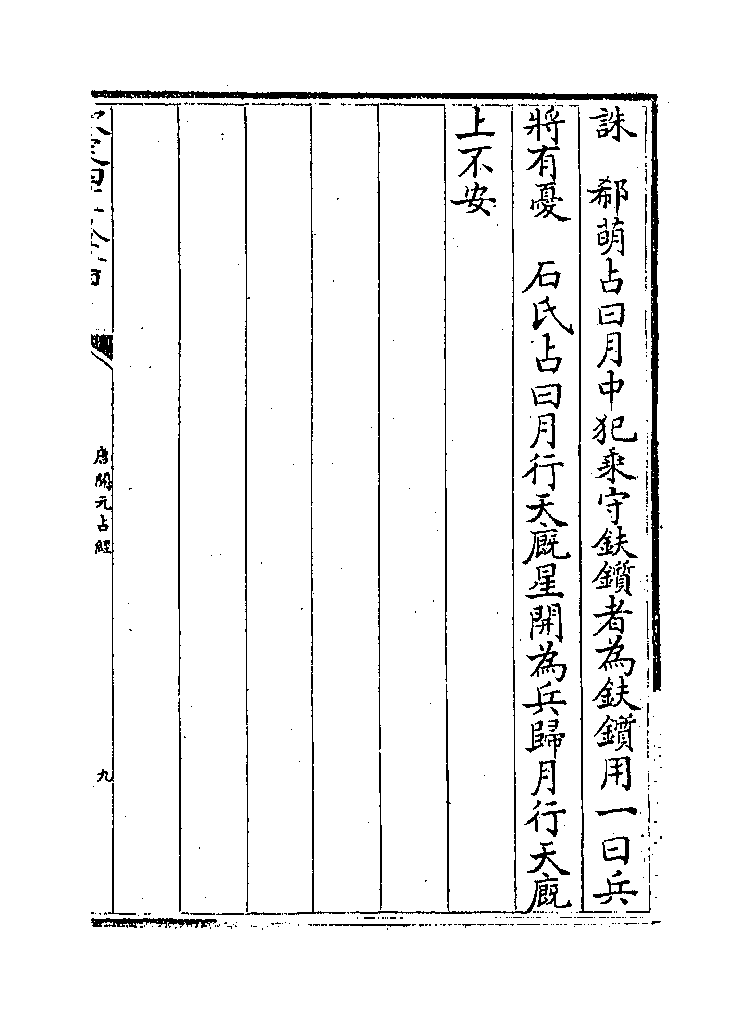 誅　郗萌占曰月中犯乘守鈇鑕者為鈇鑕用一曰兵
將有憂　石氏占曰月行天廐星開為兵歸月行天廐
上不安
唐開元占經
九